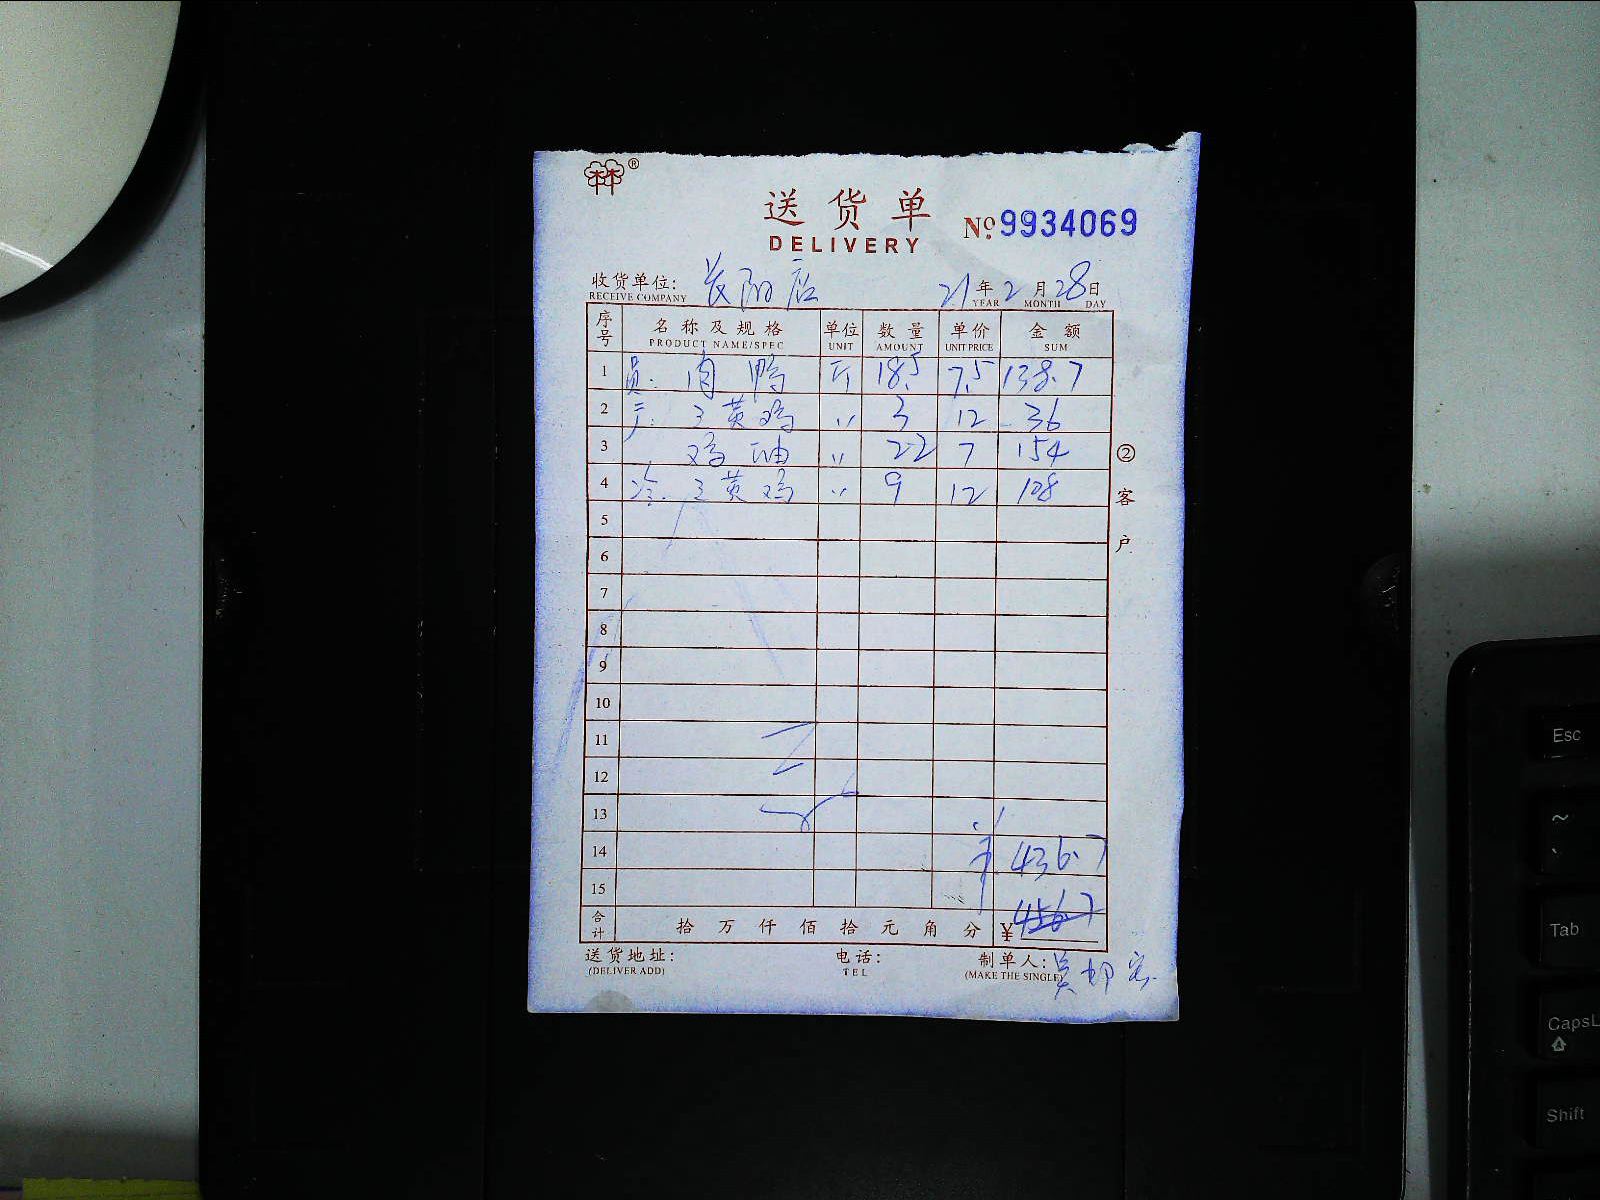 林®
送货单
DELIVERY
№ 9934069
收货单位: 长阳店 21年2月28日
RECEIVE COMPANY YEAR MONTH DAY
序号 名称及规格 单位 数量 单价 金额
PRODUCT NAME/SPEC UNIT AMOUNT UNIT PRICE SUM
1 员. 肉鸭 斤 18.5 7.5 138.7
2 三黄鸡 〃 3 12 36
3 鸡油 〃 22 7 154
4 冷. 三黄鸡 〃 9 12 108
5
6
7
8
9
10
11
12
13
14 436.7
15
合计 拾万仟佰拾元角分 ¥ 456.7
送货地址: 电话: 制单人:
(DELIVER ADD) TEL (MAKE THE SINGLE)
②客户
Esc
~
Tab
CapsL
Shift